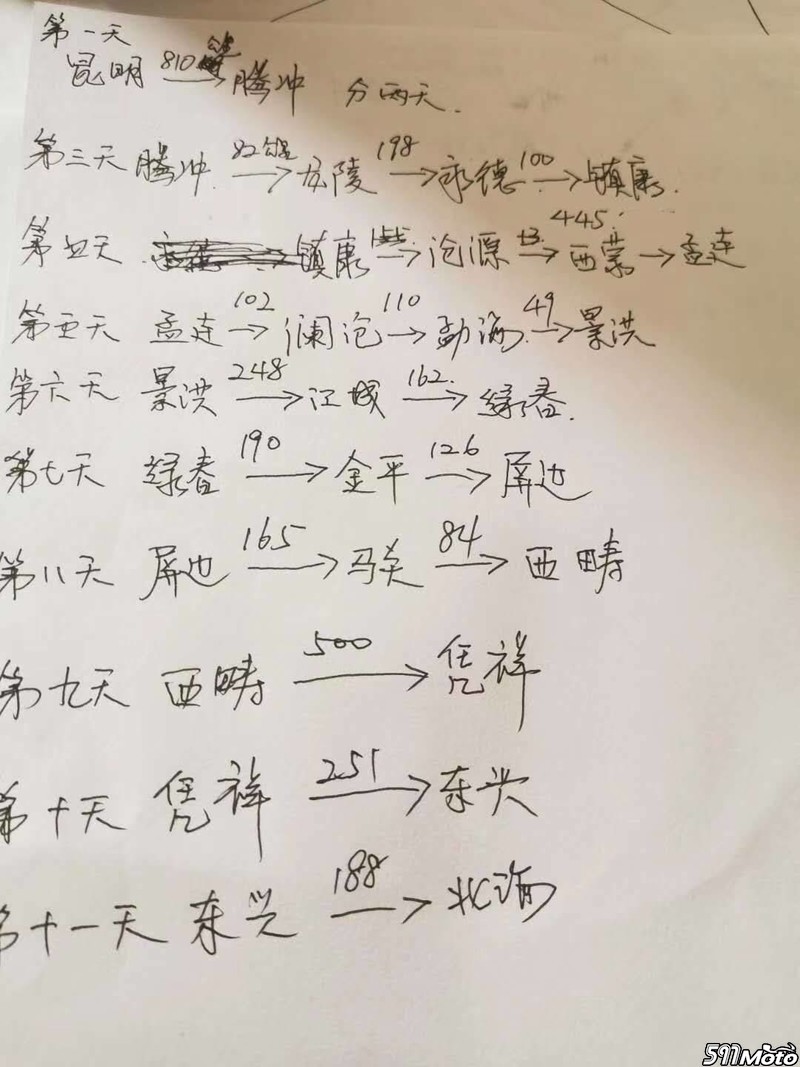 第一天
昆明 810 → 腾冲 分两天.
第三天 腾冲 → 龙陵 198 → 永德 100 → 镇康.
第四天 镇康 → 沧源 → 445. 西蒙 → 孟连
第五天 孟连 102 → 澜沧 110 → 勐海 49 → 景洪
第六天 景洪 248 → 江城 162. → 绿春.
第七天 绿春 190 → 金平 126 → 屏边
第八天 屏边 165 → 马关 84 → 西畴
第九天 西畴 500 → 凭祥
第十天 凭祥 251 → 东兴
第十一天 东兴 188 → 北海
597Moto